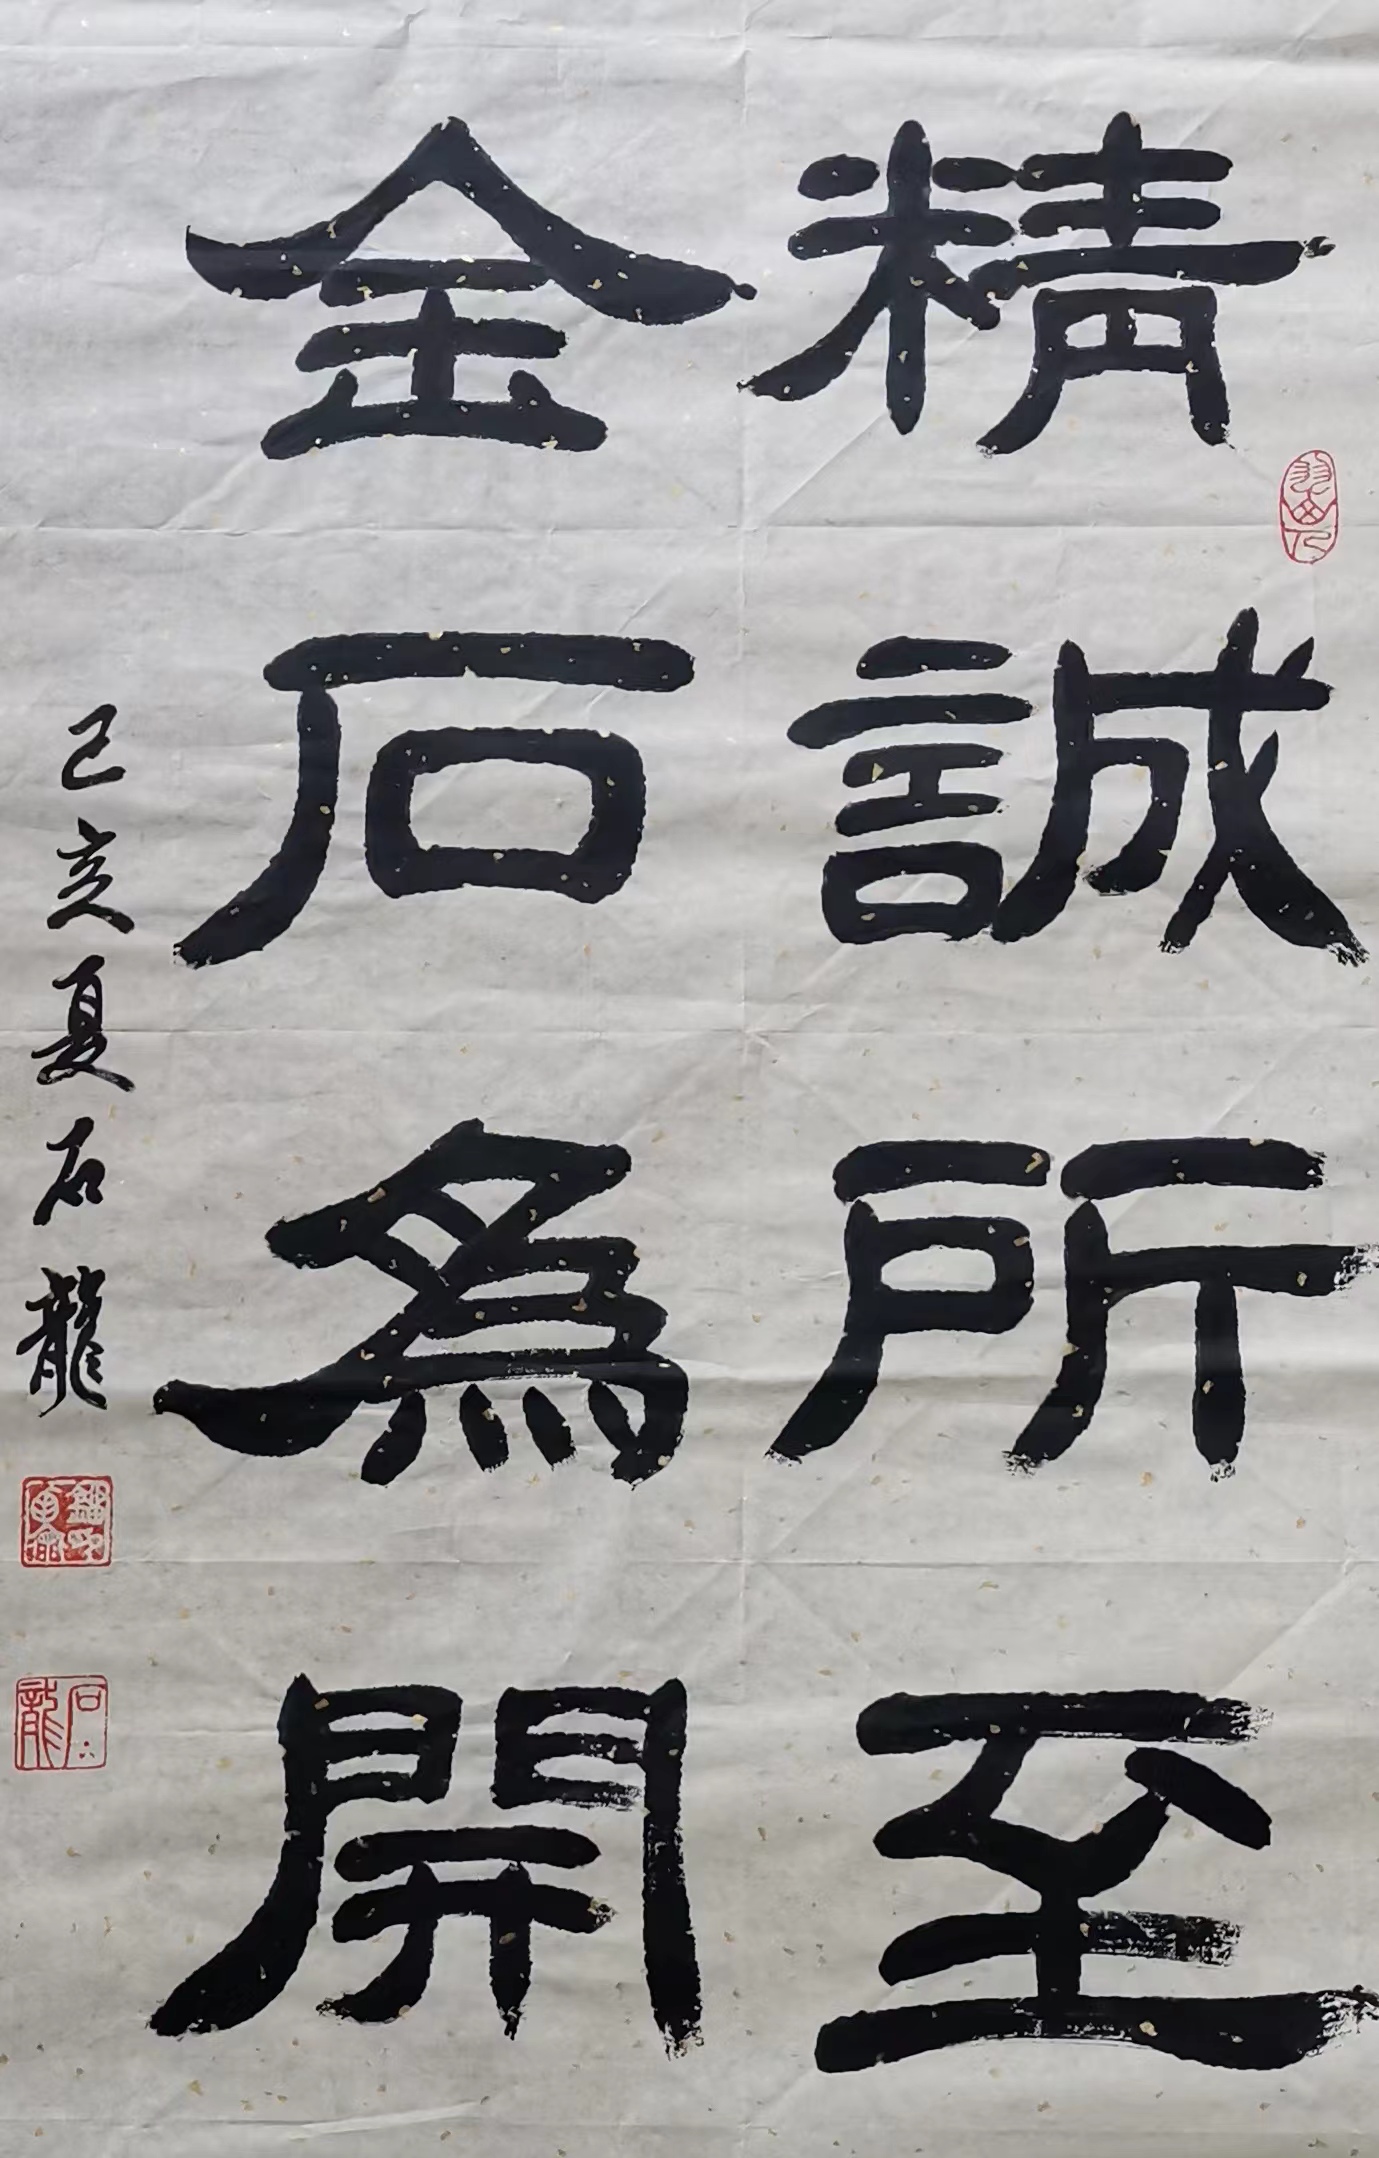 精誠所至
金石為開
己亥夏石龍
石龍